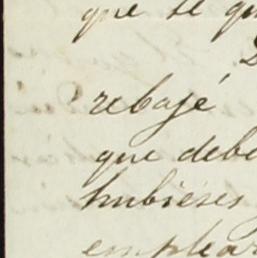 que se qu
rebajé
que debe
hubieses
emplear